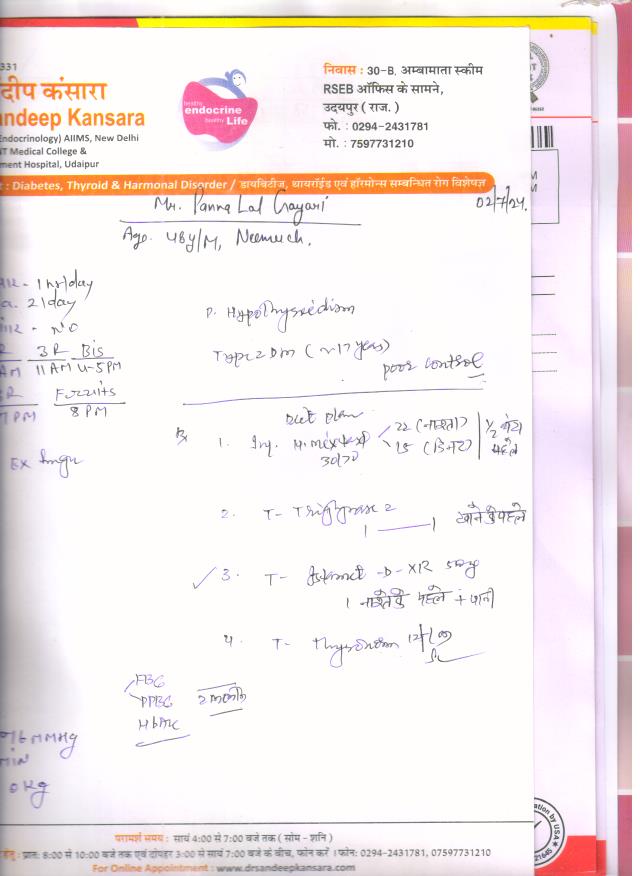 331
दीप कंसारा
ndeep Kansara
Endocrinology) AIIMS, New Delhi
NT Medical College &
ment Hospital, Udaipur
healthy
endocrine
healthy Life
निवास : 30-B, अम्बामाता स्कीम
RSEB ऑफिस के सामने,
उदयपुर ( राज. )
फो. : 0294-2431781
मो. : 7597731210
: Diabetes, Thyroid & Harmonal Disorder / डायबिटीज, थायरॉईड एवं हॉरमोन्स सम्बन्धित रोग विशेषज्ञ
Mr. Panna Lal Gayari 02/7/24.
Age. 48y/M, Neemuch.
- 1 hr/day
21day
- NO
3R Bis
AM 11 AM 4-5 PM
Fruits
7 PM 8 PM
D. Hypothyroidism
Type 2 DM ( ~17 years)
poor control
Diet plan
Rx 1. Inj. H. mixtard 22 (नाश्ता)
30/70 15 (डिनर)
1/2 घंटा
पहले
2. T- 2
1 —— 1 खाने के पहले
3. T- -D-XR 5mg
1 नाश्ते के पहले + पानी
4. T-
FBG
PPBG
HbA1c
76 mmHg
MIN
0 Kg
परामर्श समय : सायं 4:00 से 7:00 बजे तक ( सोम - शनि )
हेतु : प्रातः 8:00 से 10:00 बजे तक एवं दोपहर 3:00 से सायं 7:00 बजे के बीच, फोन करें । फोन: 0294-2431781, 07597731210
For Online Appointment : www.drsandeepkansara.com